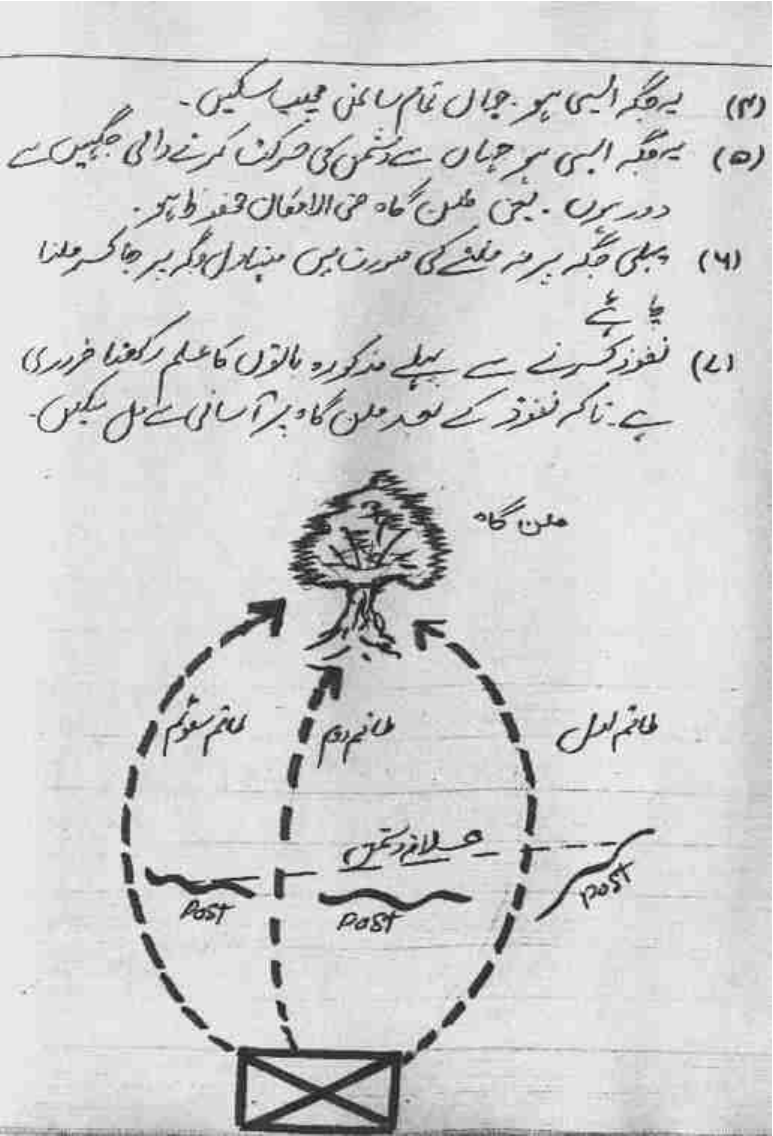 (۴) یہ جگہ ایسی ہو. جہاں تمام ساتھی چھپ سکیں۔
(۵) یہ جگہ ایسی ہو جہاں سے دشمن کی حرکت کرنے والی جگہیں سے
دور ہوں. یعنی ملن گاہ حتی الامکان محفوظ ہو.
(۶) پہلی جگہ پر نہ ملنے کی صورت میں متبادل جگہ پر جا کر ملنا
چاہئے
(۷) نفوذ کرنے سے پہلے مذکورہ باتوں کا علم رکھنا ضروری
ہے. تاکہ نفوذ کے بعد ملن گاہ پر آسانی سے مل سکیں.
ملن گاہ
اول
دوم
سوئم
علاقہ دشمن
Post
Post
Post